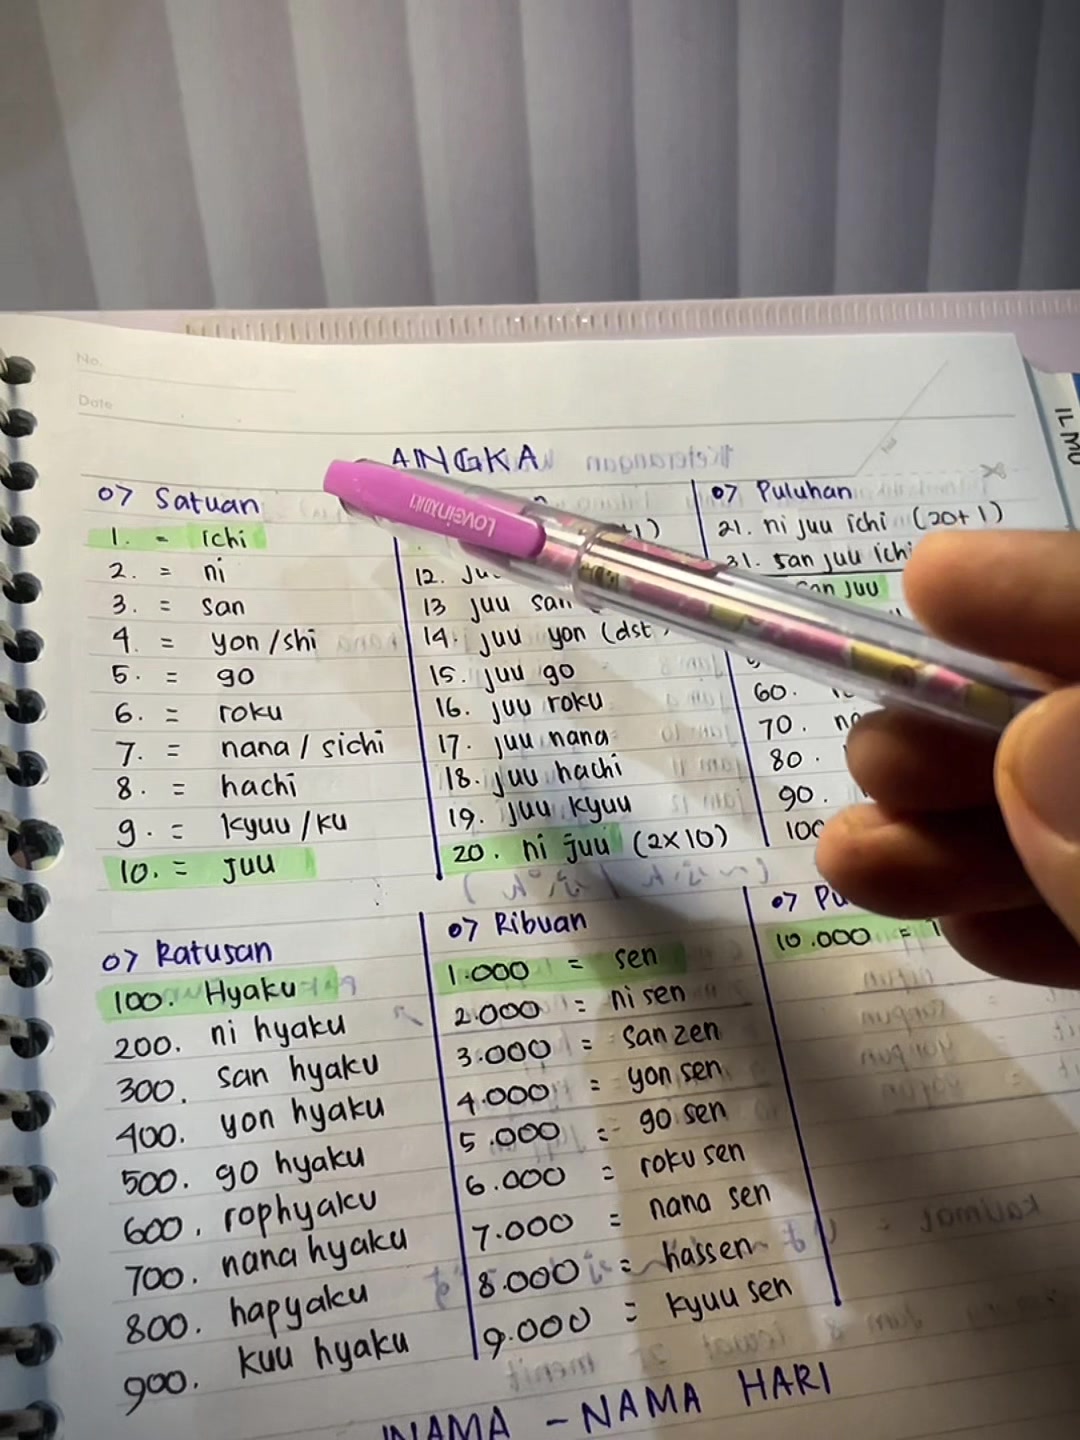 No.
Date
ANGKA
07 Satuan
1. = ichi
2. = ni
3. = san
4. = yon / shi
5. = go
6. = roku
7. = nana / sichi
8. = hachi
9. = kyuu / ku
10. = juu
12. Ju
13 juu san
14. juu yon (dst
15. juu go
16. juu roku
17. juu nana
18. juu hachi
19. juu kyuu
20. ni juu (2x10)
07 Puluhan
21. ni juu ichi (20+1)
31. san juu ichi
juu
60.
70.
80.
90.
100
07 Ratusan
100. Hyaku
200. ni hyaku
300. san hyaku
400. yon hyaku
500. go hyaku
600. rophyaku
700. nana hyaku
800. hapyaku
900. kuu hyaku
07 Ribuan
1.000 = sen
2.000 = ni sen
3.000 = san zen
4.000 = yon sen
5.000 = go sen
6.000 = roku sen
7.000 = nana sen
8.000 = hassen
9.000 = kyuu sen
07 Pu
10.000 =
NAMA - NAMA HARI
IL MU